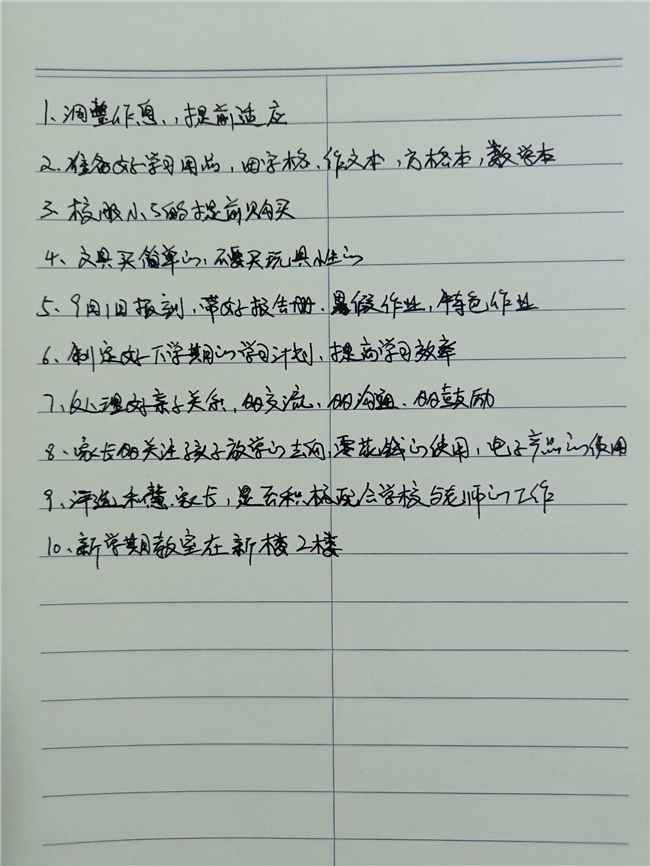 1、调整作息,,提前适应
2、准备好学习用品,田字格、作文本,方格本,数学本
3、校服小了的提前购买
4、文具买简单的,不要买玩具性的
5、9月1日报到,带好报告册、暑假作业,特色作业
6、制定好下学期的学习计划,提高学习效率
7、处理好亲子关系,多交流、多沟通、多鼓励
8、家长多关注孩子放学的去向,零花钱的使用,电子产品的使用
9、评选木慧家长,是否积极配合学校与老师的工作
10、新学期教室在新楼2楼